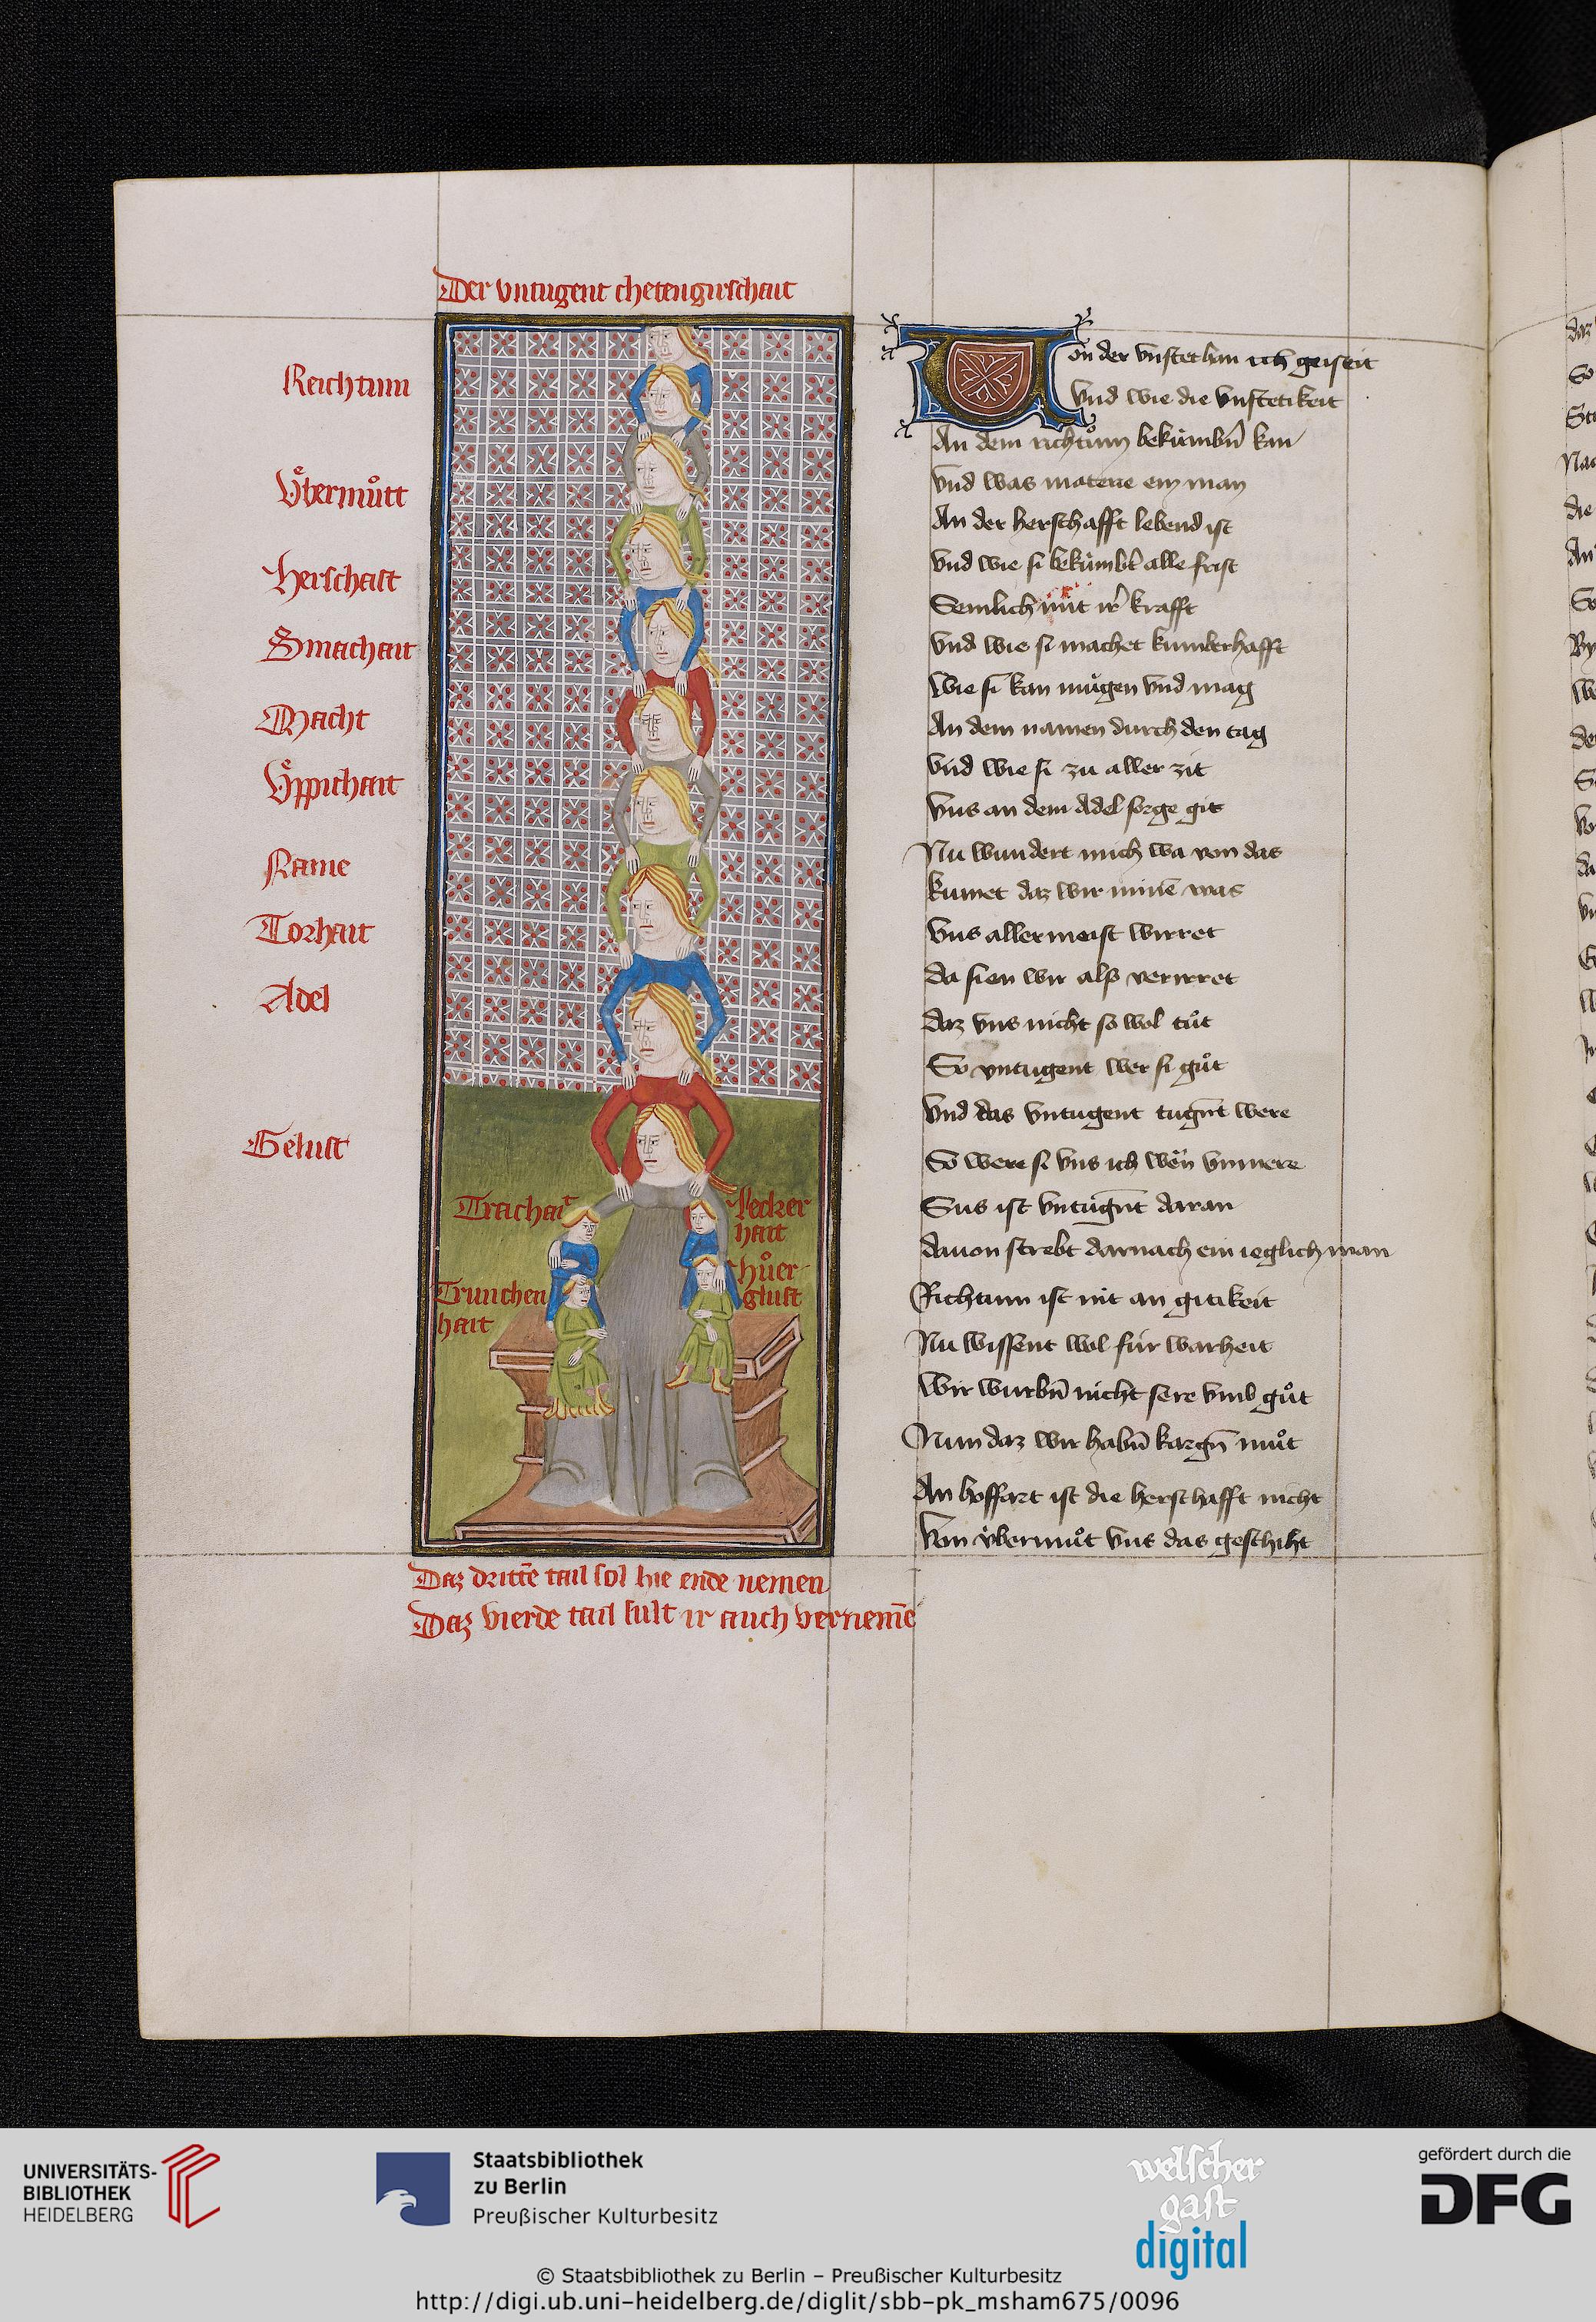 Der vntugent chetengirschait
Reichtum
Vͤbermuͦtt
Herschaft
Smachait
Macht
Vͤppichait
Name
Torhait
Adel
Gelust
Trachait
Trunchen
hait
Lecker
hait
huͦer
glust
Daz dritte tail sol hie ende nemen
Daz vierde tail sult ir auch vernemē
Von der vnstet han ich geiseit
Vnd wie die vnstetikeit
An dem richtuͦm bekúmbn̄ kan
Vnd was materie ein man
An der herschafft lebend ist
Vnd wie si bekúmbt alle frist
Semlich mit ir krafft
Vnd wie si machet kumberhafft
Wie si kan muͤgen vnd mag
An dem namen durch den tag
Vnd wie si zu aller zit
Vns an dem Adel sorge git
Nu wundert mich wa von das
kumet daz wir minē was
Vns allermeist wirret
da sien wir alß verirret
daz vns nicht so wol tuͦt
So vntugent wer si guͦt
Vnd das vntugent tugn̄t were
So were si vns ich wen vnmere
Sus ist vntugn̄t daran
dauon strebt darnach ein ieglich man
Richtum ist nit an gitikeit
Nu wissent wol fúr warheit
Wir wurbn̄ nicht sere vmb guͦt
Nun daz wir habn̄ kargn̄ muͦt
An hoffart ist die herschafft nicht
Von v́bermuͦt vns das geschiht
UNIVERSITÄTS-
BIBLIOTHEK
HEIDELBERG
Staatsbibliothek
zu Berlin
Preußischer Kulturbesitz
welscher
gast
digital
gefördert durch die
DFG
© Staatsbibliothek zu Berlin – Preußischer Kulturbesitz
http://digi.ub.uni-heidelberg.de/diglit/sbb-pk_msham675/0096